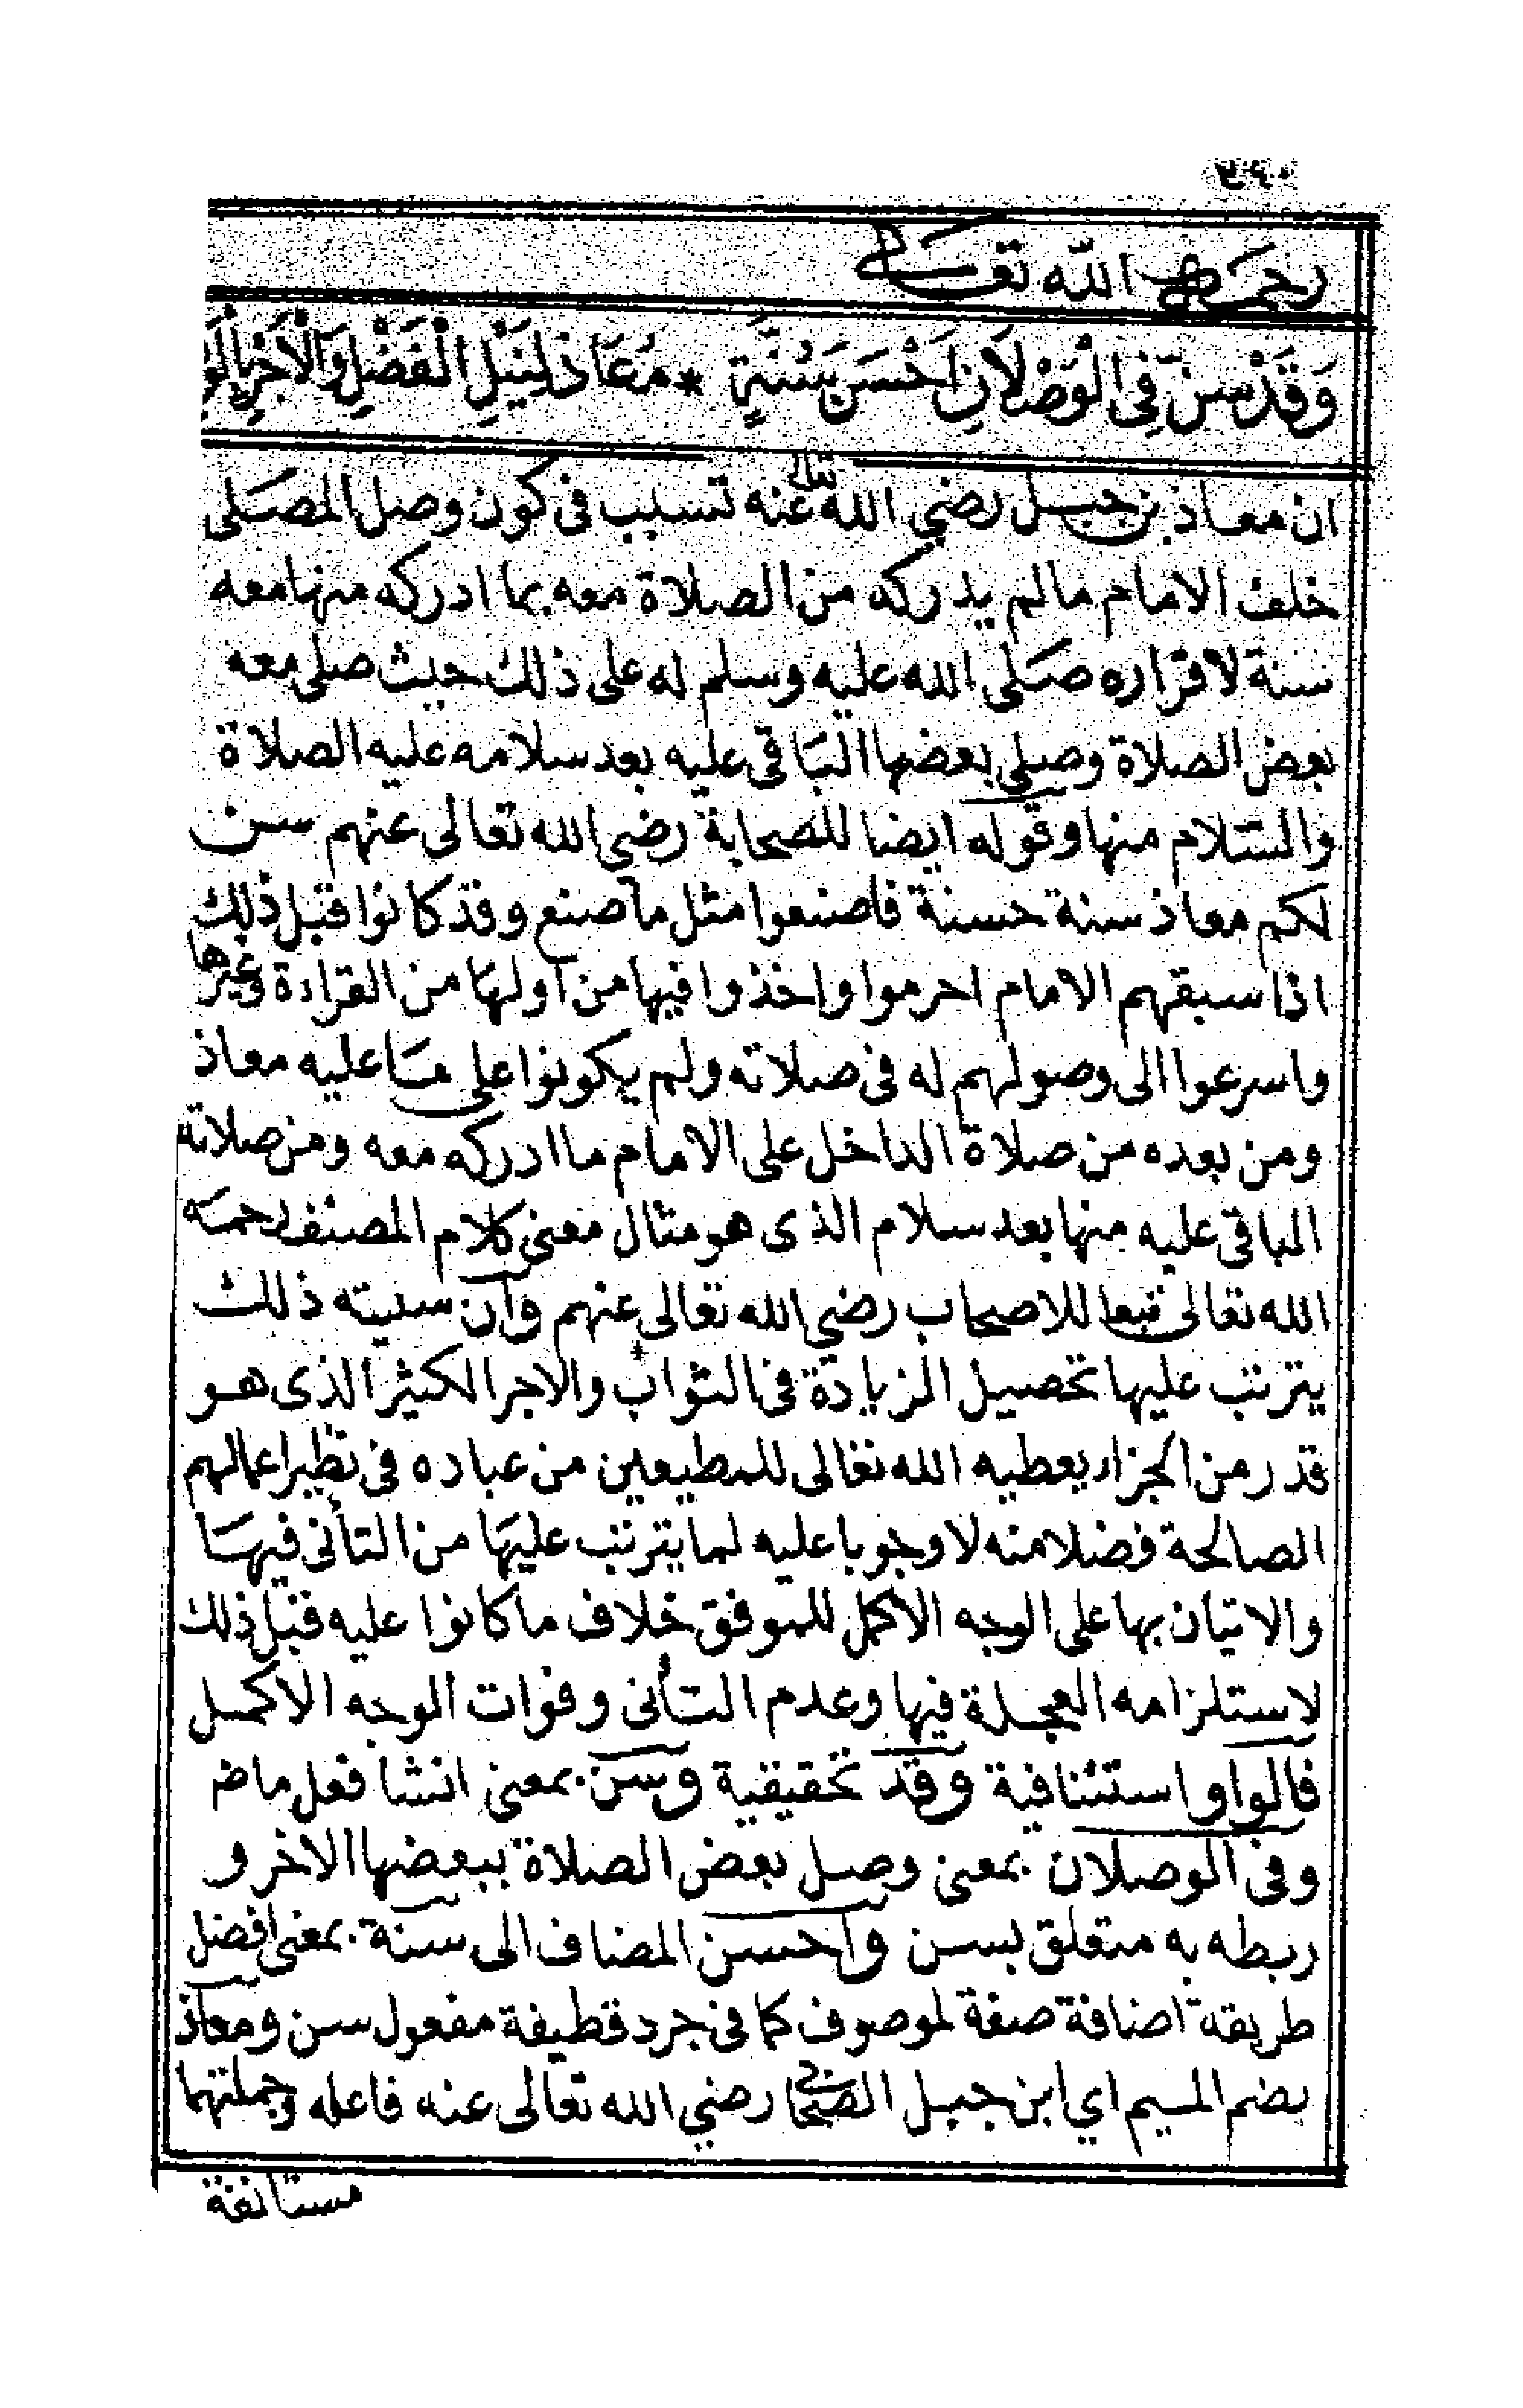 رحمه الله تعالى
وَقَدْ سَنَّ فِي الْوَصْلَانِ أَحْسَنَ سُنَّةٍ * مُعَاذٌ لِنَيْلِ الْفَضْلِ وَالْأَجْرِ
ان معاذ بن جبل رضي الله تعالى عنه تسبب في كون وصل المصلى
خلف الامام مالم يدركه من الصلاة معه بما ادركه منها معه
سنة لاقراره صلى الله عليه وسلم له على ذلك حيث صلى معه
بعض الصلاة وصلى بعضها الباقى عليه بعد سلامه عليه الصلاة
والسلام منها وقوله ايضا للصحابة رضي الله تعالى عنهم سن
لكم معاذ سنة حسنة فاصنعوا مثل ما صنع وقد كانوا قبل ذلك
اذا سبقهم الامام احرموا واخذوا فيها من اولها من القراءة وغيرها
واسرعوا الى وصولهم له فى صلاته ولم يكونوا على ما عليه معاذ
ومن بعده من صلاة الداخل على الامام ما ادركه معه ومن صلاته
الباقى عليه منها بعد سلام الذى هو مثال معنى كلام المصنف رحمه
الله تعالى تبعا للاصحاب رضي الله تعالى عنهم وان سنيته ذلك
يترتب عليها تحصيل الزيادة فى الثواب والاجر الكثير الذى هو
قدر من الجزاء يعطيه الله تعالى للمطيعين من عباده فى نظير اعمالهم
الصالحة فضلا منه لا وجوبا عليه لما يترتب عليها من التأنى فيها
والاتيان بها على الوجه الاكمل للموفق خلاف ما كانوا عليه قبل ذلك
لاستلزامه العجلة فيها وعدم التأنى وفوات الوجه الاكمل
فالواو استئنافية وقد تحقيقية وسن بمعنى انشا فعل ماض
وفى الوصلان بمعنى وصل بعض الصلاة ببعضها الاخر و
ربطه به متعلق بسن واحسن المضاف الى سنة بمعنى افضل
طريقة اضافة صفة لموصوف كما فى جرد قطيفة مفعول سن ومعاذ
بضم الميم اي ابن جبل الصحابي رضي الله تعالى عنه فاعله وجملتهما
مستانفة